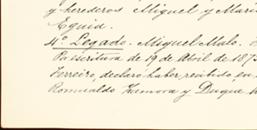 y herederos Miguel y Marí
Eguia.
4º Legado. Miguel Malo.
Pa escritura de 19 de Abril de 187
Ferreiro, declaro haber recibido en
Romualdo Zamora y Duque